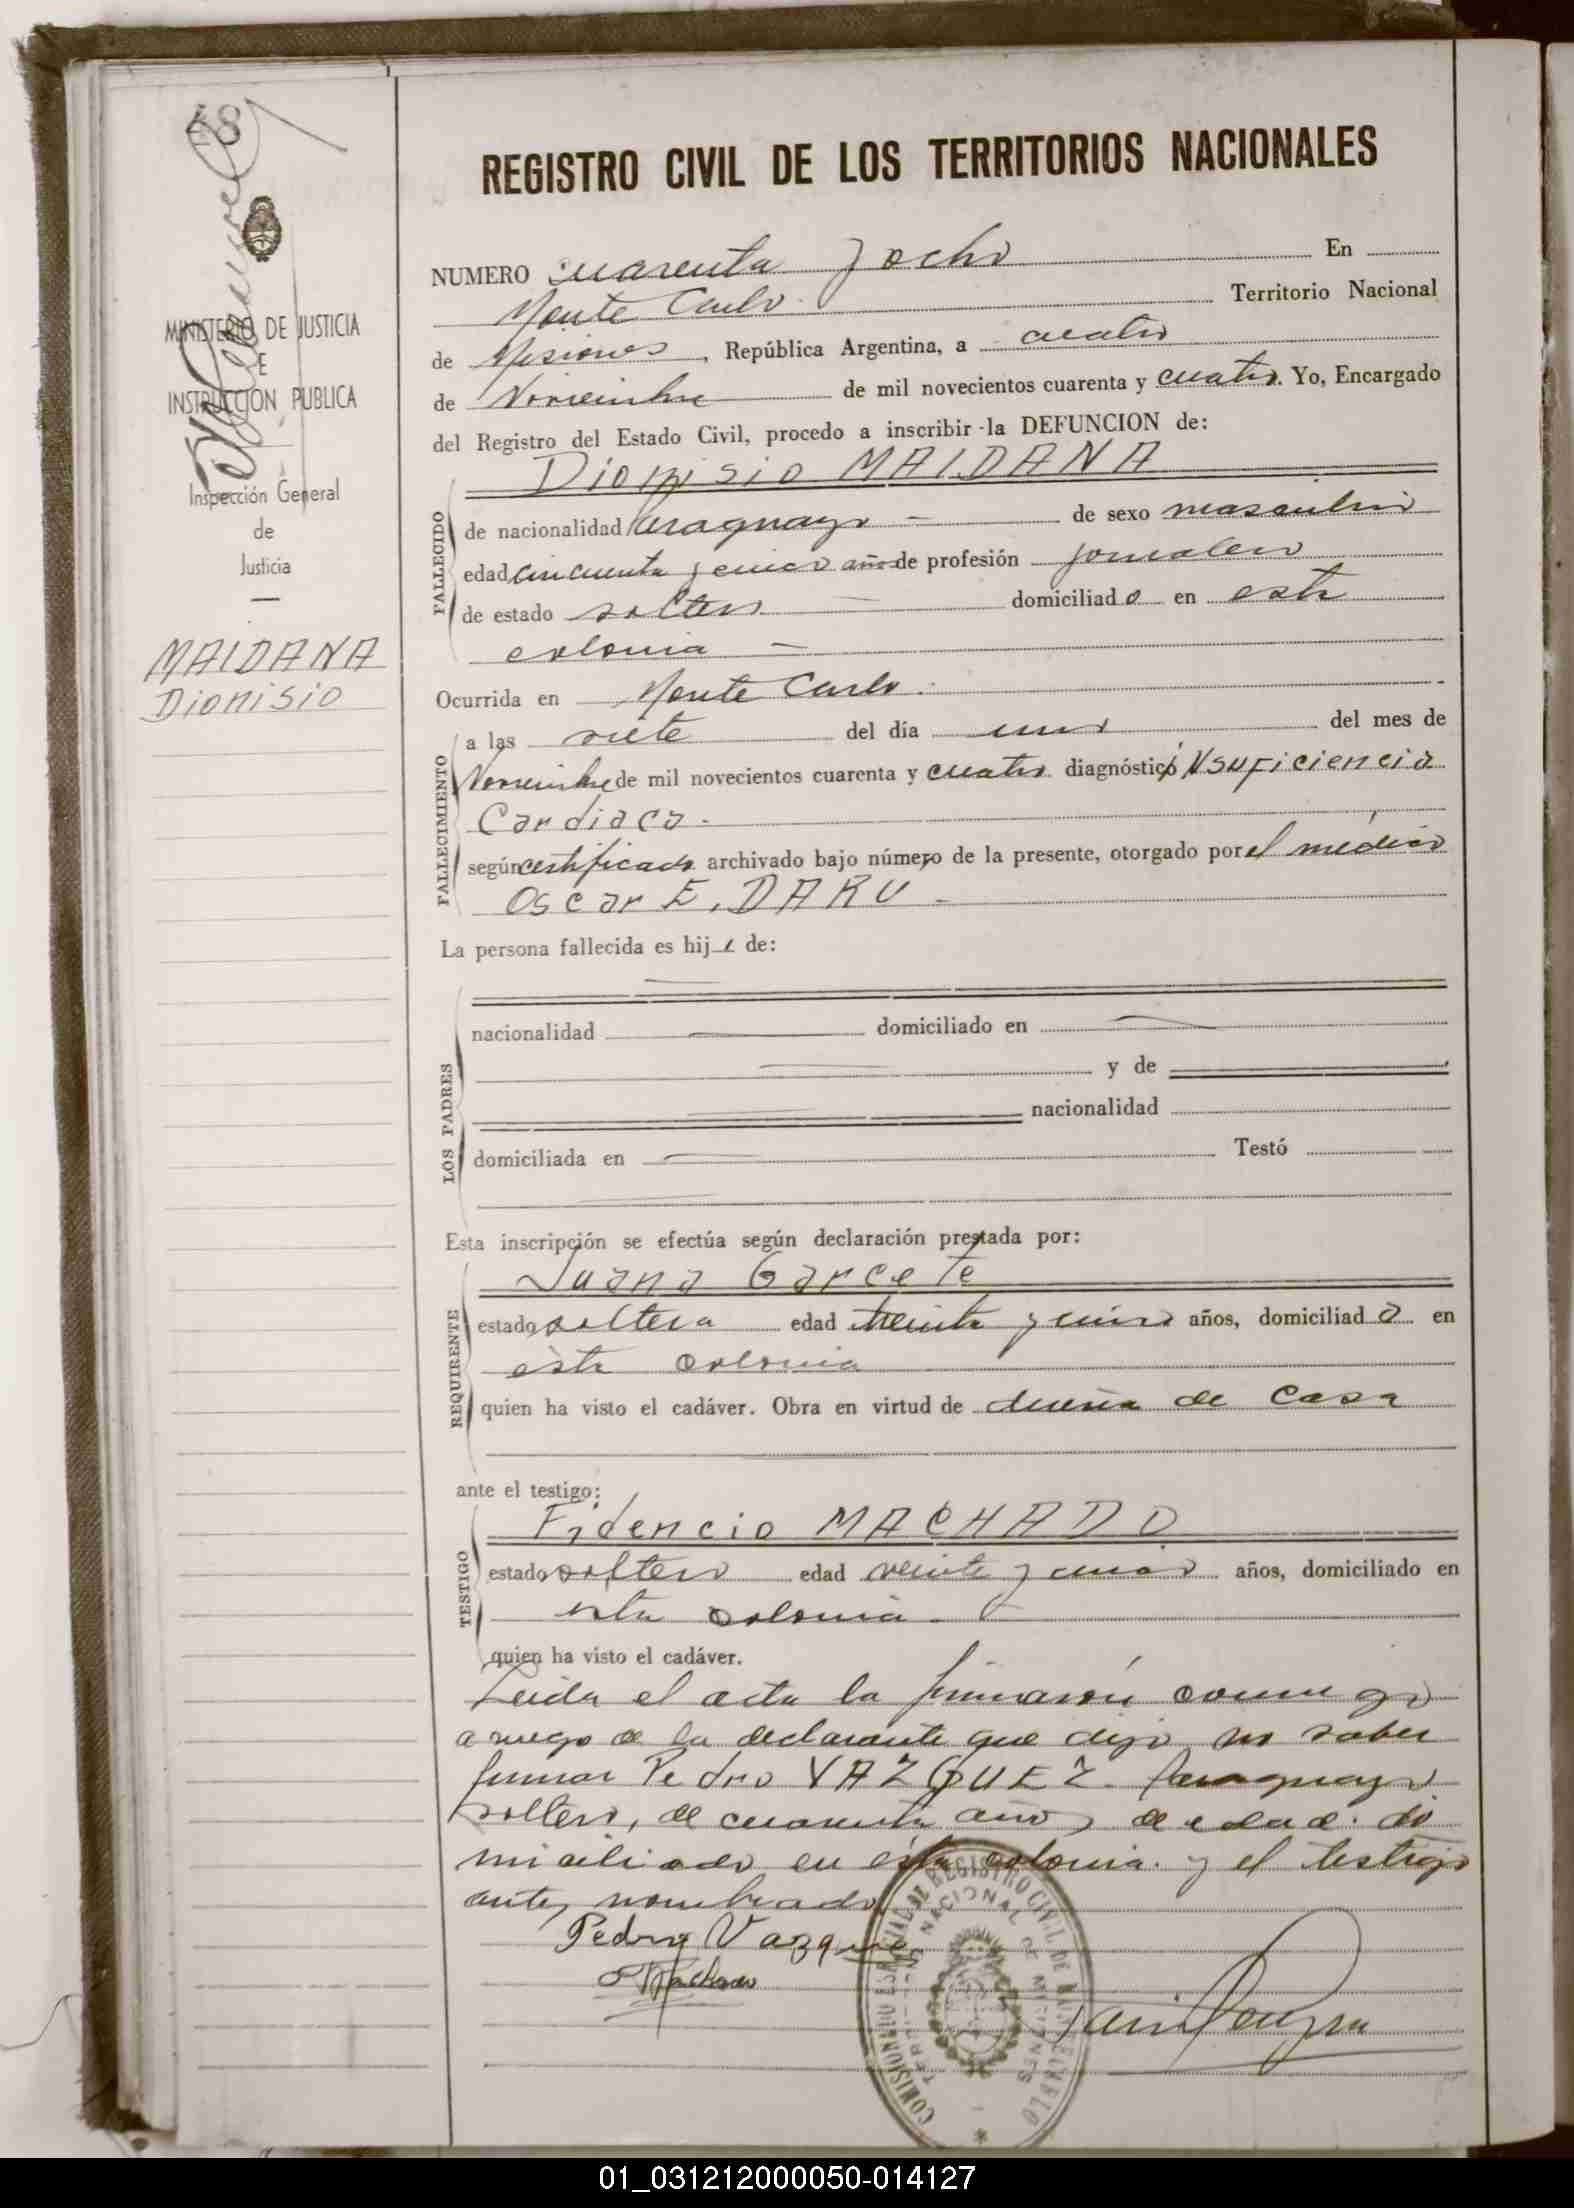 48
MINISTERIO DE JUSTICIA
E
INSTRUCCION PUBLICA
Inspección General
de
Justicia
MAIDANA
Dionisio
REGISTRO CIVIL DE LOS TERRITORIOS NACIONALES
NUMERO cuarenta y ocho En
Monte Carlo. Territorio Nacional
de Misiones, República Argentina, a cuatro
de Noviembre de mil novecientos cuarenta y cuatro. Yo, Encargado
del Registro del Estado Civil, procedo a inscribir la DEFUNCION de:
Dionisio MAIDANA
FALLECIDO
de nacionalidad Paraguayo de sexo masculino
edad cincuenta y cinco años de profesión jornalero
de estado soltero domiciliado en esta
colonia
Ocurrida en Monte Carlo.
FALLECIMIENTO
a las siete del día uno del mes de
Noviembre de mil novecientos cuarenta y cuatro diagnóstico INsuficiencia
Cardiaca.
según certificado archivado bajo número de la presente, otorgado por el médico
Oscar E. DARU
La persona fallecida es hij de:
LOS PADRES
nacionalidad domiciliado en
y de
nacionalidad
domiciliada en Testó
Esta inscripción se efectúa según declaración prestada por:
Juana Garcete
REQUIRENTE
estado soltera edad treinta y cinco años, domiciliada en
ésta colonia
quien ha visto el cadáver. Obra en virtud de dueña de casa
ante el testigo:
Fidencio MACHADO
TESTIGO
estado soltero edad veinte y años, domiciliado en
esta colonia.
quien ha visto el cadáver.
Leida el acta la firmaron conmigo
a ruego de la declarante que dijo no saber
firmar Pedro VAZQUEZ. Paraguayo
soltero, de cuarenta años de edad. do
miciliado en ésta colonia. y el testigo
antes nombrado
Pedro Vazquez
FMachado
COMISIONADO ESPECIAL DE REGISTRO CIVIL DE MONTECARLO
TERRITORIO NACIONAL DE MISIONES
01_031212000050-014127